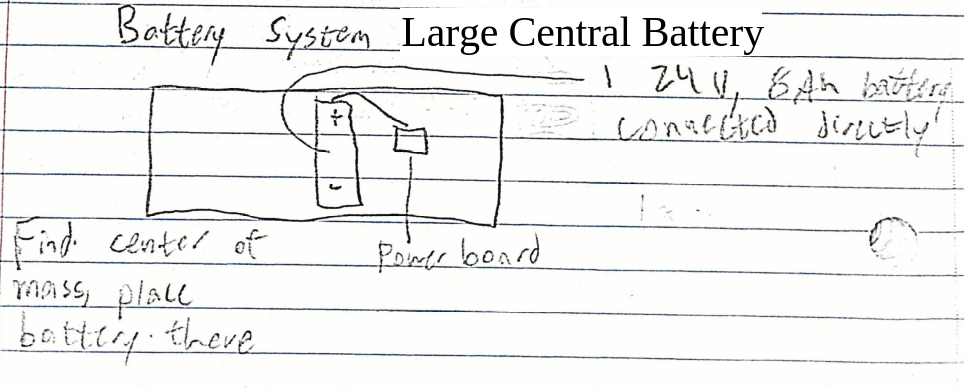 Battery System Large Central Battery
1 24V, 8Ah battery
connected directly
+
-
Find center of
mass, place
battery there
Power board